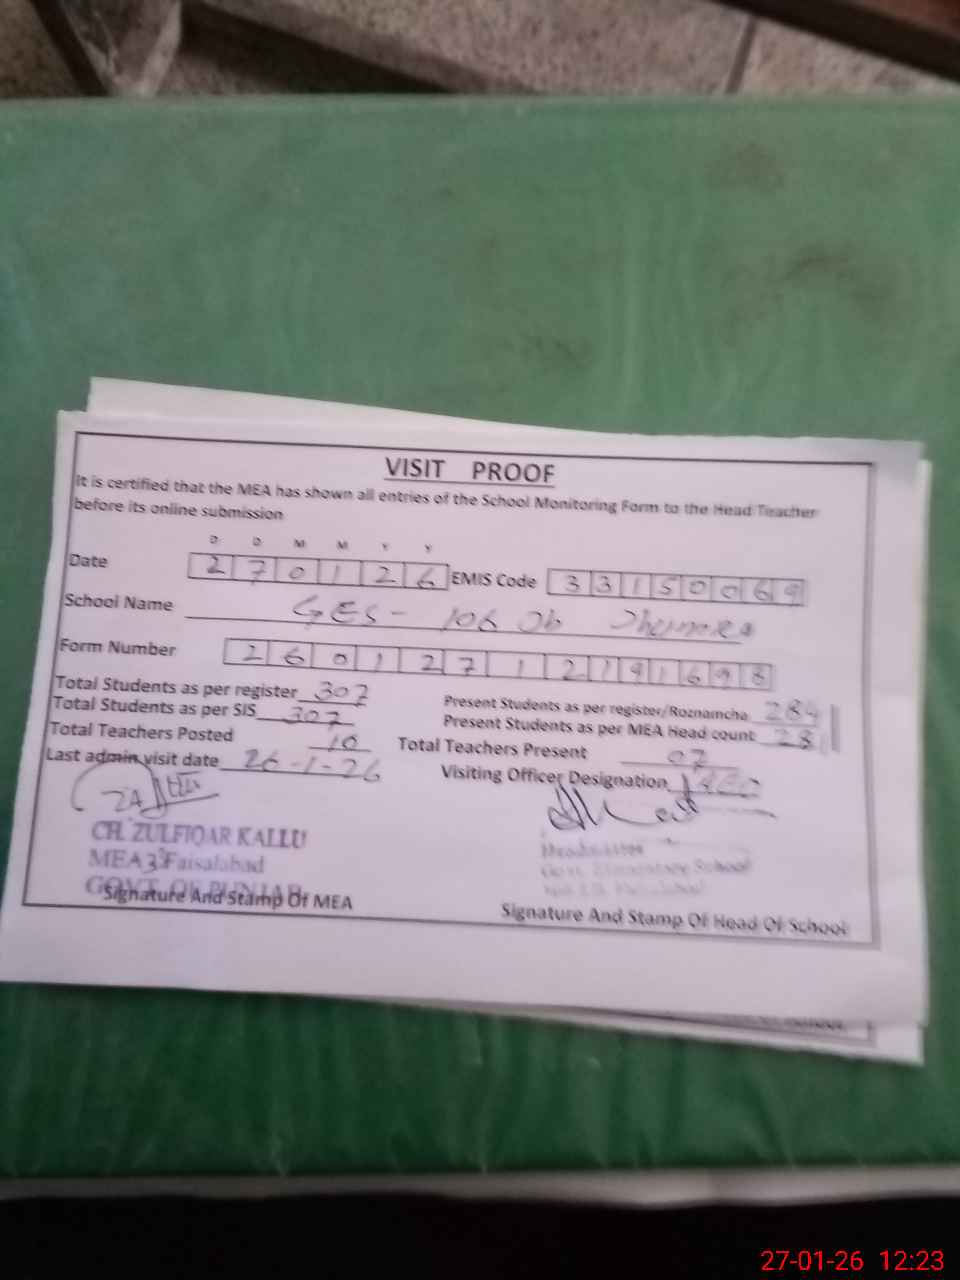 VISIT PROOF
It is certified that the MEA has shown all entries of the School Monitoring Form to the Head Teacher
before its online submission
D D M M Y Y
Date 2 7 0 1 2 6 EMIS Code 3 3 1 5 0 0 6 9
School Name GES - 106 Jb
Form Number 2 6 0 1 2 7 1 2 1 9 1 6 9 8
Total Students as per register 307
Present Students as per register/Roznamcha 284
Total Students as per SIS 307
Present Students as per MEA Head count
Total Teachers Posted 10
Total Teachers Present 07
Last admin visit date 26-1-26
Visiting Officer Designation
CH. ZULFIQAR KALLU
MEA 3 Faisalabad
GOVT. OF PUNJAB
Signature And Stamp Of MEA
Headmaster
Govt. Elementary School
Signature And Stamp Of Head Of School
27-01-26 12:23